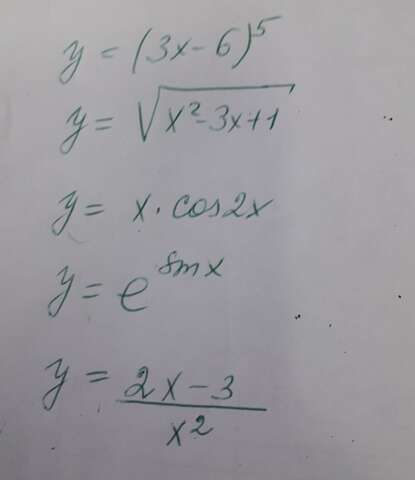 y = (3x - 6)⁵
y = √(x² - 3x + 1)
y = x · cos2x
y = e^(sin x)
y = (2x - 3)/x²